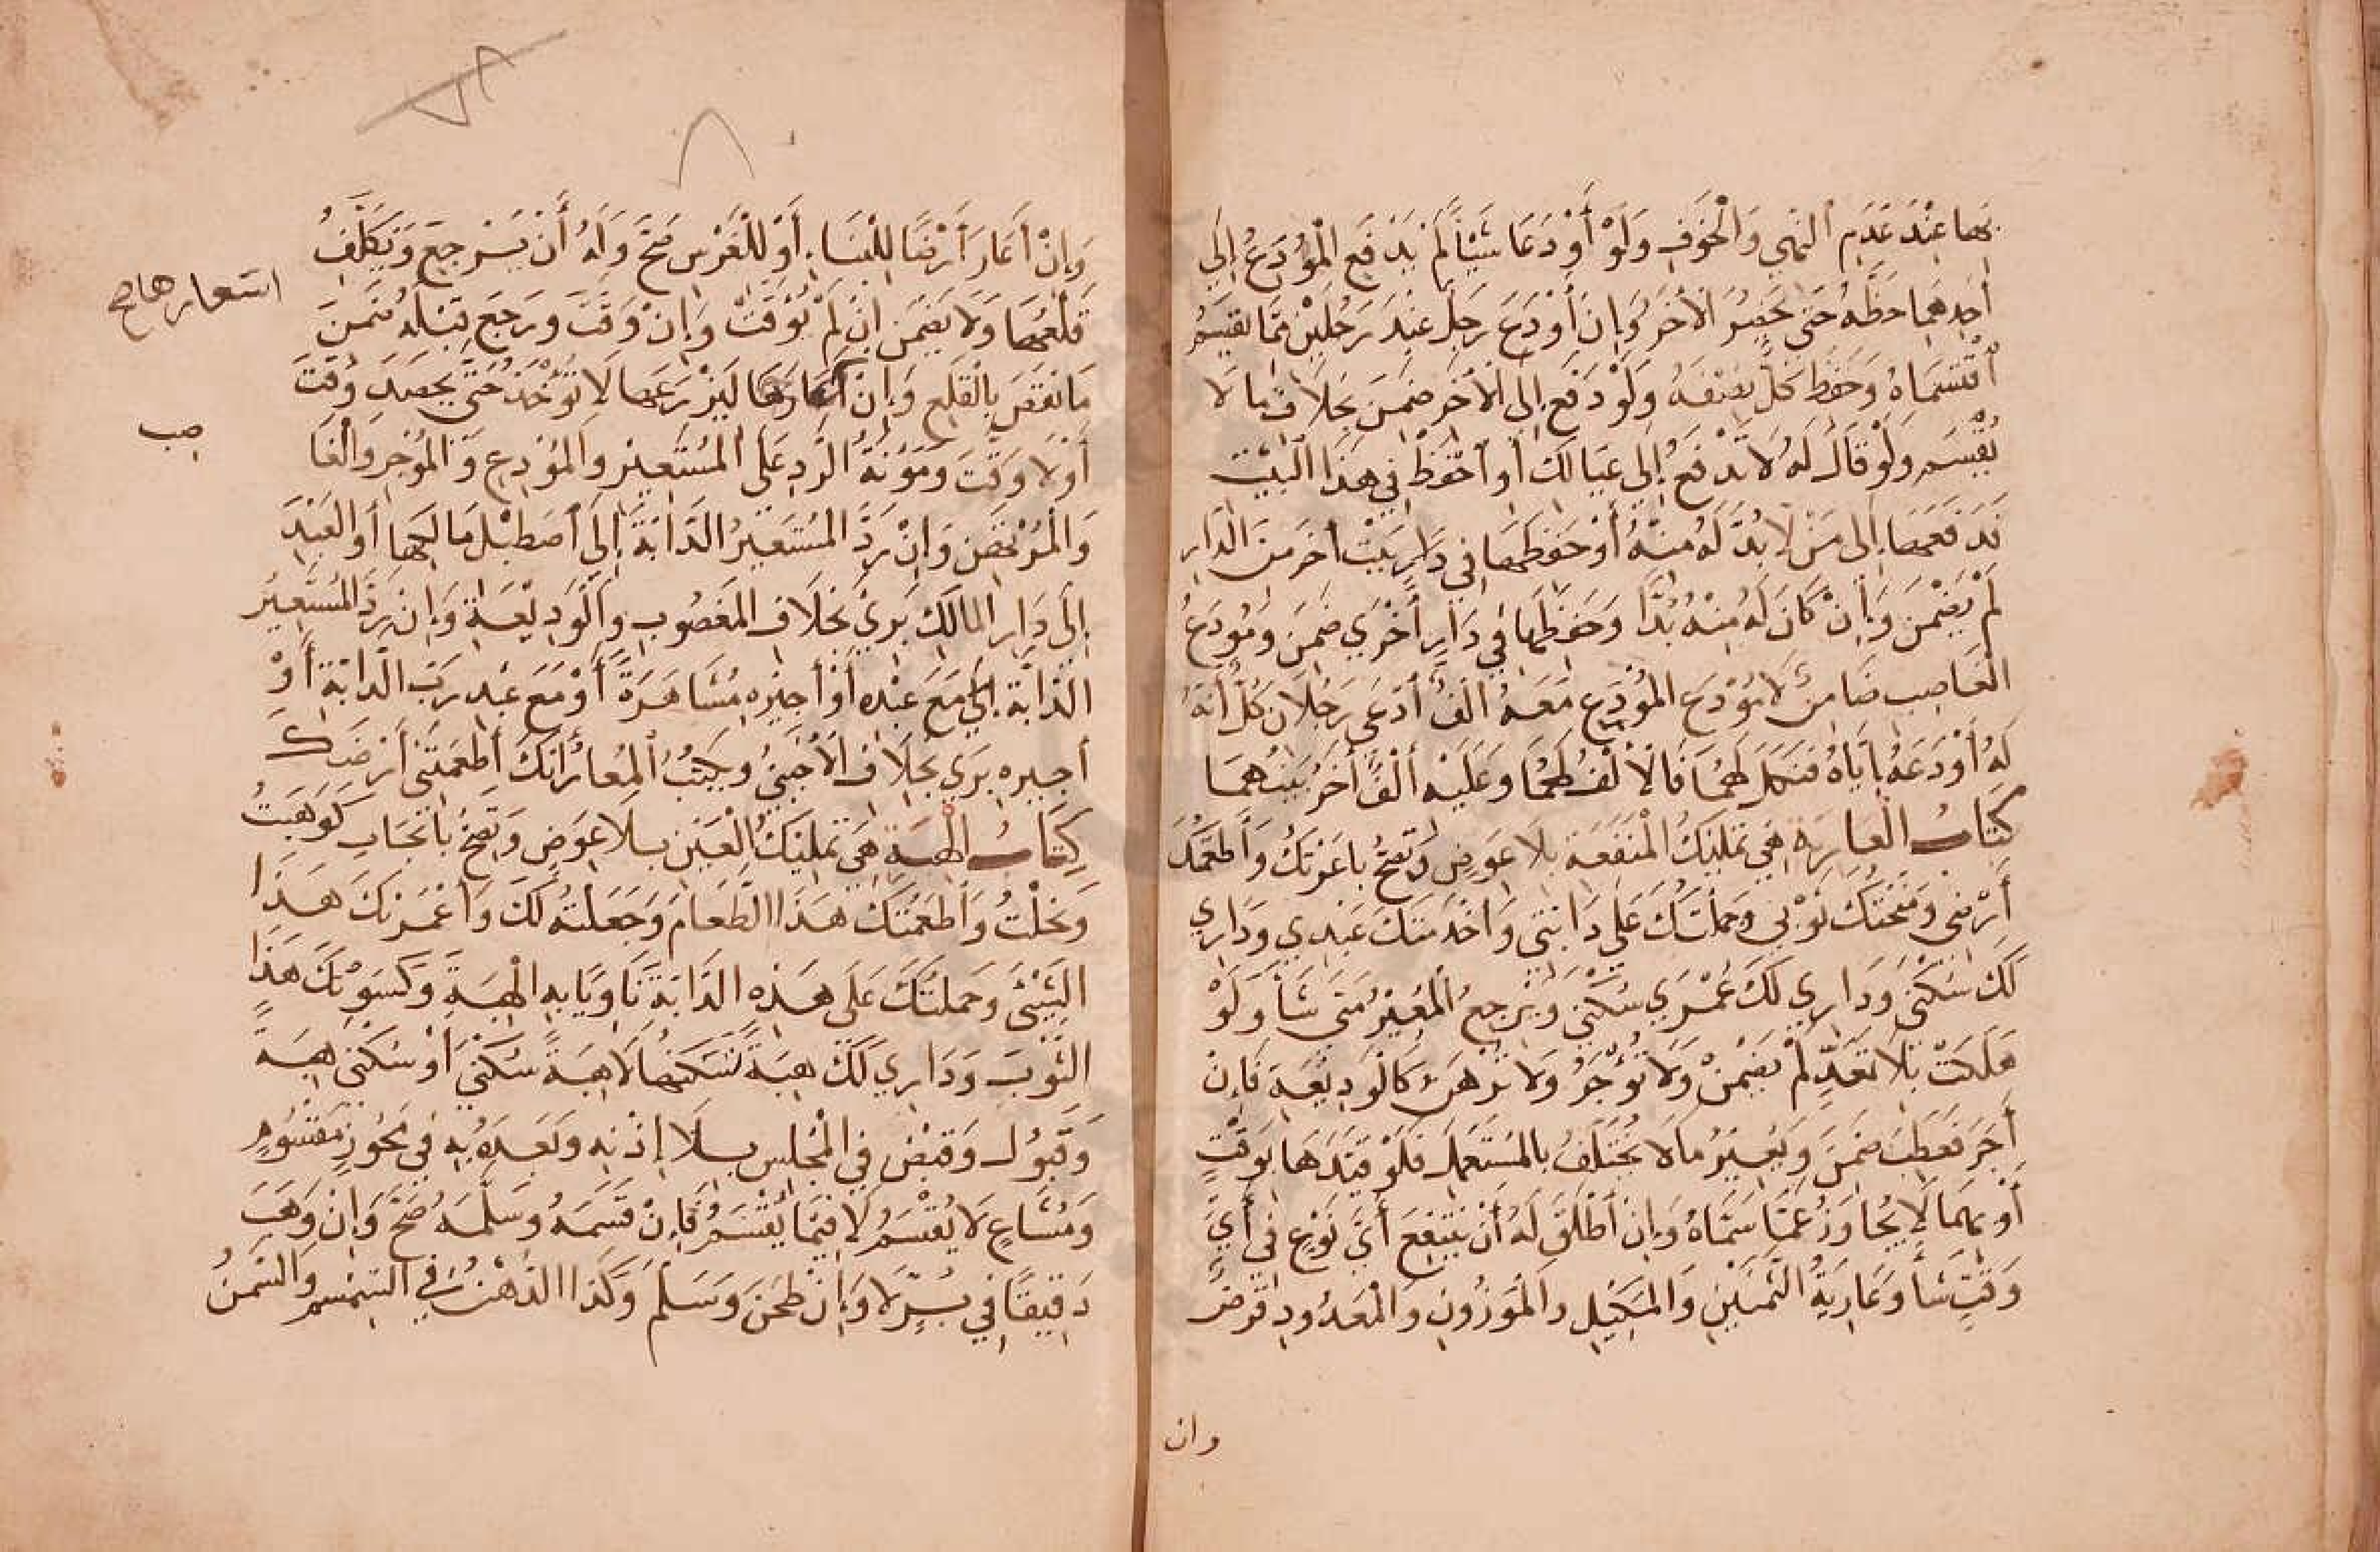 بِهَا عِنْدَ عَدَمِ النَّهْيِ وَالْخَوْفِ وَلَوْ أَوْدَعَا شَيْئًا لَمْ يَدْفَعِ الْمُوْدَعُ إِلَى
أَحَدِهِمَا حَظَّهُ حَتَّى يَحْضُرَ الْآخَرُ وَإِنْ أَوْدَعَ رَجُلٌ عِنْدَ رَجُلَيْنِ مِمَّا يُقْسَمُ
اقْتَسَمَاهُ وَحَفِظَ كُلٌّ نِصْفَهُ وَلَوْ دَفَعَ إِلَى الْآخَرِ ضَمِنَ بِخِلَافِ مَا لَا
يُقْسَمُ وَلَوْ قَالَ لَهُ لَا تَدْفَعْ إِلَى عِيَالِكَ أَوِ احْفَظْ فِي هَذَا الْبَيْتِ
فَدَفَعَهَا إِلَى مَنْ لَا بُدَّ لَهُ مِنْهُ أَوْ حَفِظَهَا فِي دَارِ بَيْتٍ أخَرَ مِنَ الدَّارِ
لَمْ يَضْمَنْ وَإِنْ كَانَ لَهُ مِنْهُ بُدًّا وَحَفِظَهَا فِي دَارٍ أُخْرَى ضَمِنَ وَمُوْدَعُ
الْغَاصِبِ ضَامِنٌ لَا مُوْدَعُ الْمُوْدَعِ مَعَهُ أَلْفٌ ادَّعَى رَجُلَانِ كُلٌّ أَنَّهُ
لَهُ أَوْدَعَهُ إِيَّاهُ فَنَكَلَ لَهُمَا فَالْأَلْفُ لَهُمَا وَعَلَيْهِ أَلْفٌ أخَرُ بَيْنَهُمَا
كِتَابُ الْعَارِيَةِ هِيَ تَمْلِيْكُ الْمَنْفَعَةِ بِلَا عِوَضٍ وَتَصِحُّ بِأَعَرْتُكَ وَأَطْعَمْتُكَ
أَرْضِي وَمَنَحْتُكَ ثَوْبِي وَحَمَلْتُكَ عَلَى دَابَّتِي وَأَخْدَمْتُكَ عَبْدِي وَدَارِي
لَكَ سُكْنَى وَدَارِي لَكَ عُمْرَى سُكْنَى وَيَرْجِعُ الْمُعِيْرُ مَتَى شَاءَ وَلَوْ
هَلَكَتْ بِلَا تَعَدٍّ لَمْ يَضْمَنْ وَلَا تُؤَجَّرُ وَلَا تُرْهَنُ كَالْوَدِيْعَةِ فَإِنْ
أَجَرَ فَعَطِبَ ضَمِنَ وَيُعِيْرُ مَا لَا يَخْتَلِفُ بِالْمُسْتَعْمِلِ فَلَوْ قَيَّدَهَا بِوَقْتٍ
أَوْ بِهِمَا لَا يُجَاوِزُ عَمَّا سَمَّاهُ وَإِنْ أَطْلَقَ لَهُ أَنْ يَنْتَفِعَ أَيَّ نَوْعٍ فِي أَيِّ
وَقْتٍ شَأَ وَعَارِيَةُ الثَّمَنَيْنِ وَالْمَكِيْلِ وَالْمَوْزُونِ وَالْمَعْدُودِ قَرْضٌ
وان
وَإِنْ أَعَارَ أَرْضًا لِلْبِنَاءِ أَوْ لِلْغَرْسِ صَحَّ وَلَهُ أَنْ يَسْتَرْجِعَ وَيُكَلِّفُ
قَلْعَهُمَا وَلَا يَضْمَنُ إِنْ لَمْ يُوَقِّتْ وَإِنْ وَقَّتَ وَرَجَعَ قَبْلَهُ ضَمِنَ
مَا نَقَصَ بِالْقَلْعِ وَإِنْ أَعَارَهَا لِيَزْرَعَهَا لَا تُؤْخَذُ حَتَّى يَحْصِدَ وَقَّتَ
أَوْ لَا وَقَّتَ وَمُؤْنَةُ الرَّدِّ عَلَى الْمُسْتَعِيْرِ وَالْمُوْدِعِ وَالْمُؤْجِرِ وَالْغَا
صب
وَالْمُرْتَهِنِ وَإِنْ رَدَّ الْمُسْتَعِيْرُ الدَّابَّةَ إِلَى اصْطَبْلِ مَالِكِهَا أَوِ الْعَبْدَ
إِلَى دَارِ الْمَالِكِ بَرِئَ بِخِلَافِ الْمَغْصُوبِ وَالْوَدِيْعَةِ وَإِنْ رَدَّ الْمُسْتَعِيْرُ
الدَّابَّةَ إِلَى مَعَ عَبْدِهِ أَوْ أَجِيْرِهِ مُشَاهَرَةً أَوْ مَعَ عَبْدِ رَبِّ الدَّابَّةِ أَوْ
أَجِيْرِهِ بَرِئَ بِخِلَافِ الْأَجْنَبِيِّ وَيَكْتُبُ الْمُعَارُ أَنَّكَ أَطْعَمْتَنِي أَرْضَكَ
كِتَابُ الْهِبَةِ هِيَ تَمْلِيْكُ الْعَيْنِ بِلَا عِوَضٍ وَتَصِحُّ بِإِيْجَابٍ كَوَهَبْتُ
وَنَحَلْتُ وَأَطْعَمْتُكَ هَذَا الطَّعَامَ وَجَعَلْتُهُ لَكَ وَأَعْمَرْتُكَ هَذَا
الشَّيْئَ وَحَمَلْتُكَ عَلَى هَذِهِ الدَّابَّةِ نَاوِيًا بِهِ الْهِبَةَ وَكَسَوْتُكَ هَذَا
الثَّوْبَ وَدَارِي لَكَ هِبَةً تَسْكُنُهَا لَا هِبَةً سُكْنَى أَوْ سُكْنَى هِبَةً
وَقَبُوْلٍ وَقَبْضٍ فِي الْمَجْلِسِ بِلَا إِذْنِهِ وَبَعْدَهُ بِهِ فِي مَحُوْزٍ مَقْسُوْمٍ
وَمُشَاعٍ لَا يُقْسَمُ لَا فِيْمَا يُقْسَمُ فَإِنْ قَسَمَهُ وَسَلَّمَهُ صَحَّ وَإِنْ وَهَبَ
دَقِيْقًا فِي بُرٍّ لَا وَإِنْ طَحَنَ وَسَلَّمَ وَكَذَا الدُّهْنُ فِي السِّمْسِمِ وَالسَّمْنُ